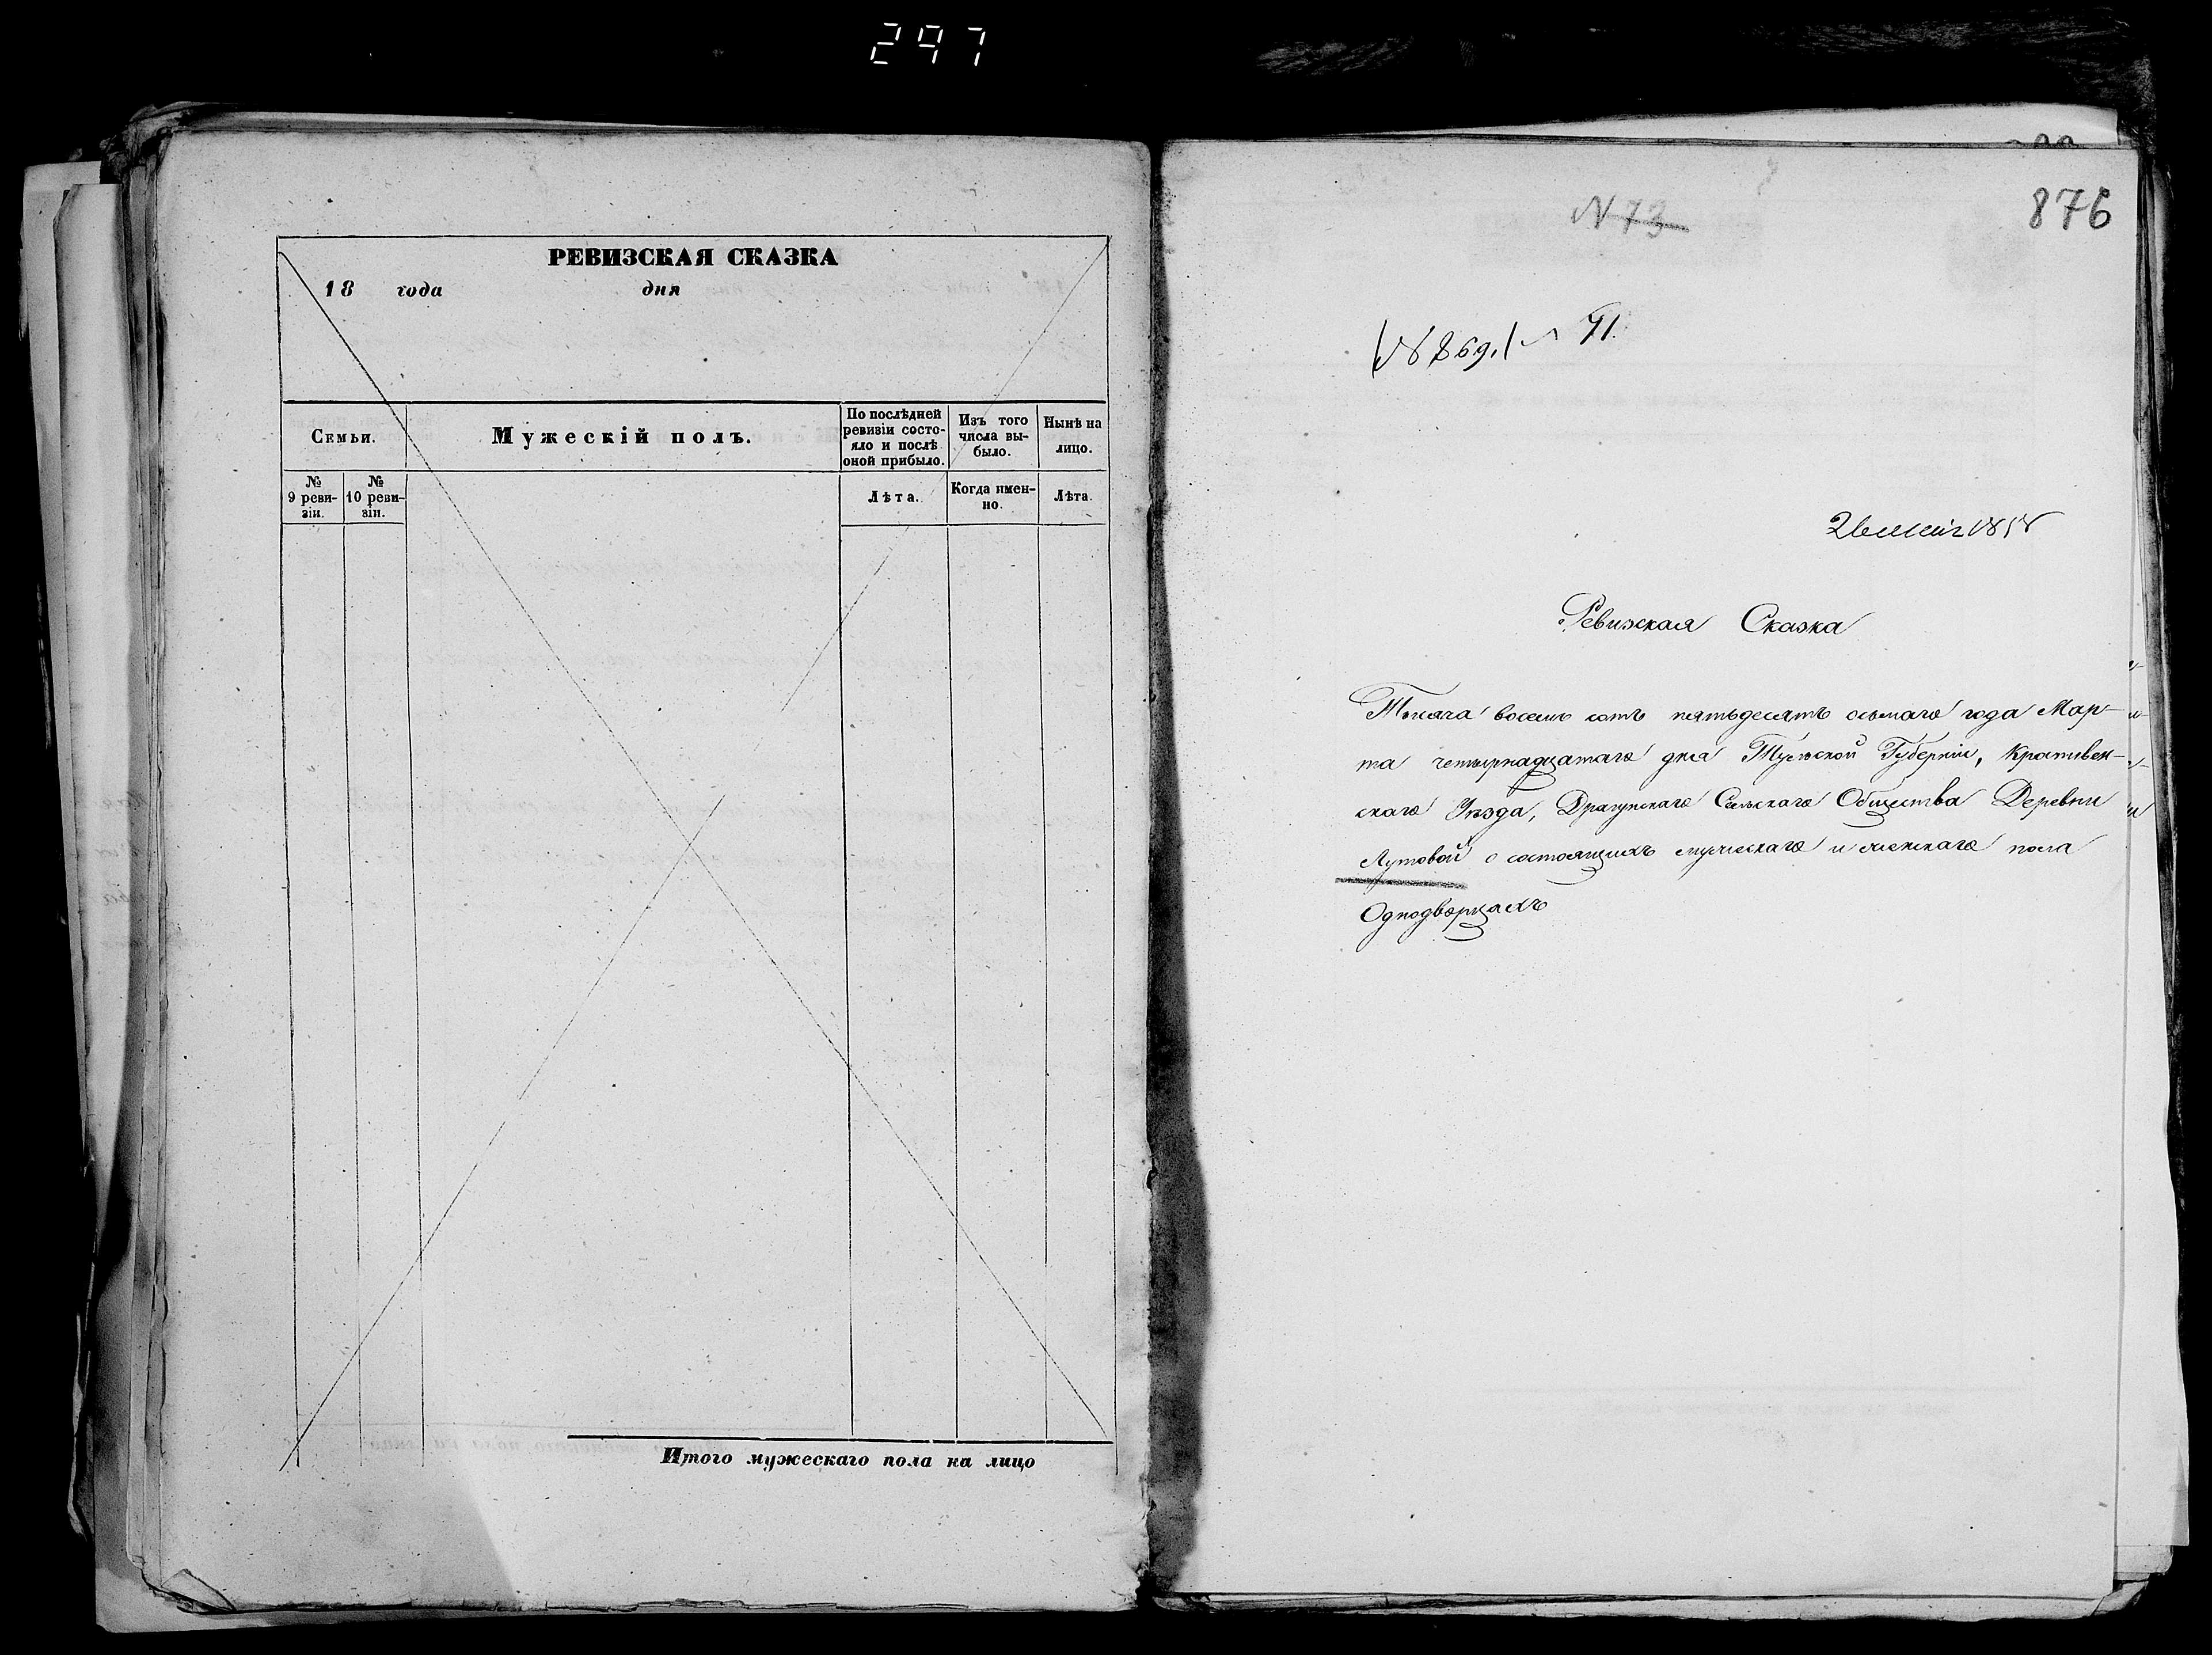 297
РЕВИЗСКАЯ СКАЗКА
18 года дня
Семьи.
Мужескій полъ.
По послѣдней
ревизіи состо-
яло и послѣ
оной прибыло.
Изъ того
числа вы-
было.
Нынѣ на
лицо.
№
9 реви-
зіи.
№
10 реви-
зіи.
Лѣта.
Когда имен-
но.
Лѣта.
Итого мужескаго пола на лицо
876
N 73
N 869.
91.
1858
Ревизская Сказка
Тысяча восемь сотъ пятьдесятъ осьмаго года Мар-
та четырнадцатаго дня Тульской Губерніи, Крапивен-
скаго Уѣзда, Драгунскаго Сельскаго Общества Деревни
Лутовой о состоящихъ мужескаго и женскаго пола
Однодворцахъ